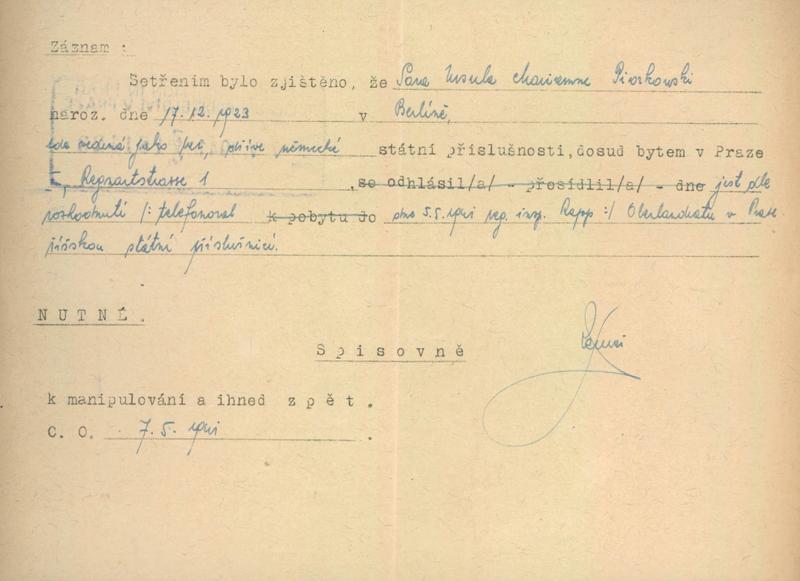 Záznam :
Setřením bylo zjištěno, že Sara Ursula Marianne Piorkowski
naroz. dne 17.12.1923 v Berlíně,
zde vedená jako dříve německé státní příslušnosti, dosud bytem v Praze
1 , se odhlásil/a/ - přesídlil/a/ - dne jest dle
rozhodnutí /: telefonoval k pobytu do dne 5.5.1941 reg. insp. Rapp :/ Oberlandratu v Praze
říšskou státní příslušnicí.
NUTNÉ.
Spisovně
k manipulování a ihned zpět.
C. O. 7.5.1941 .